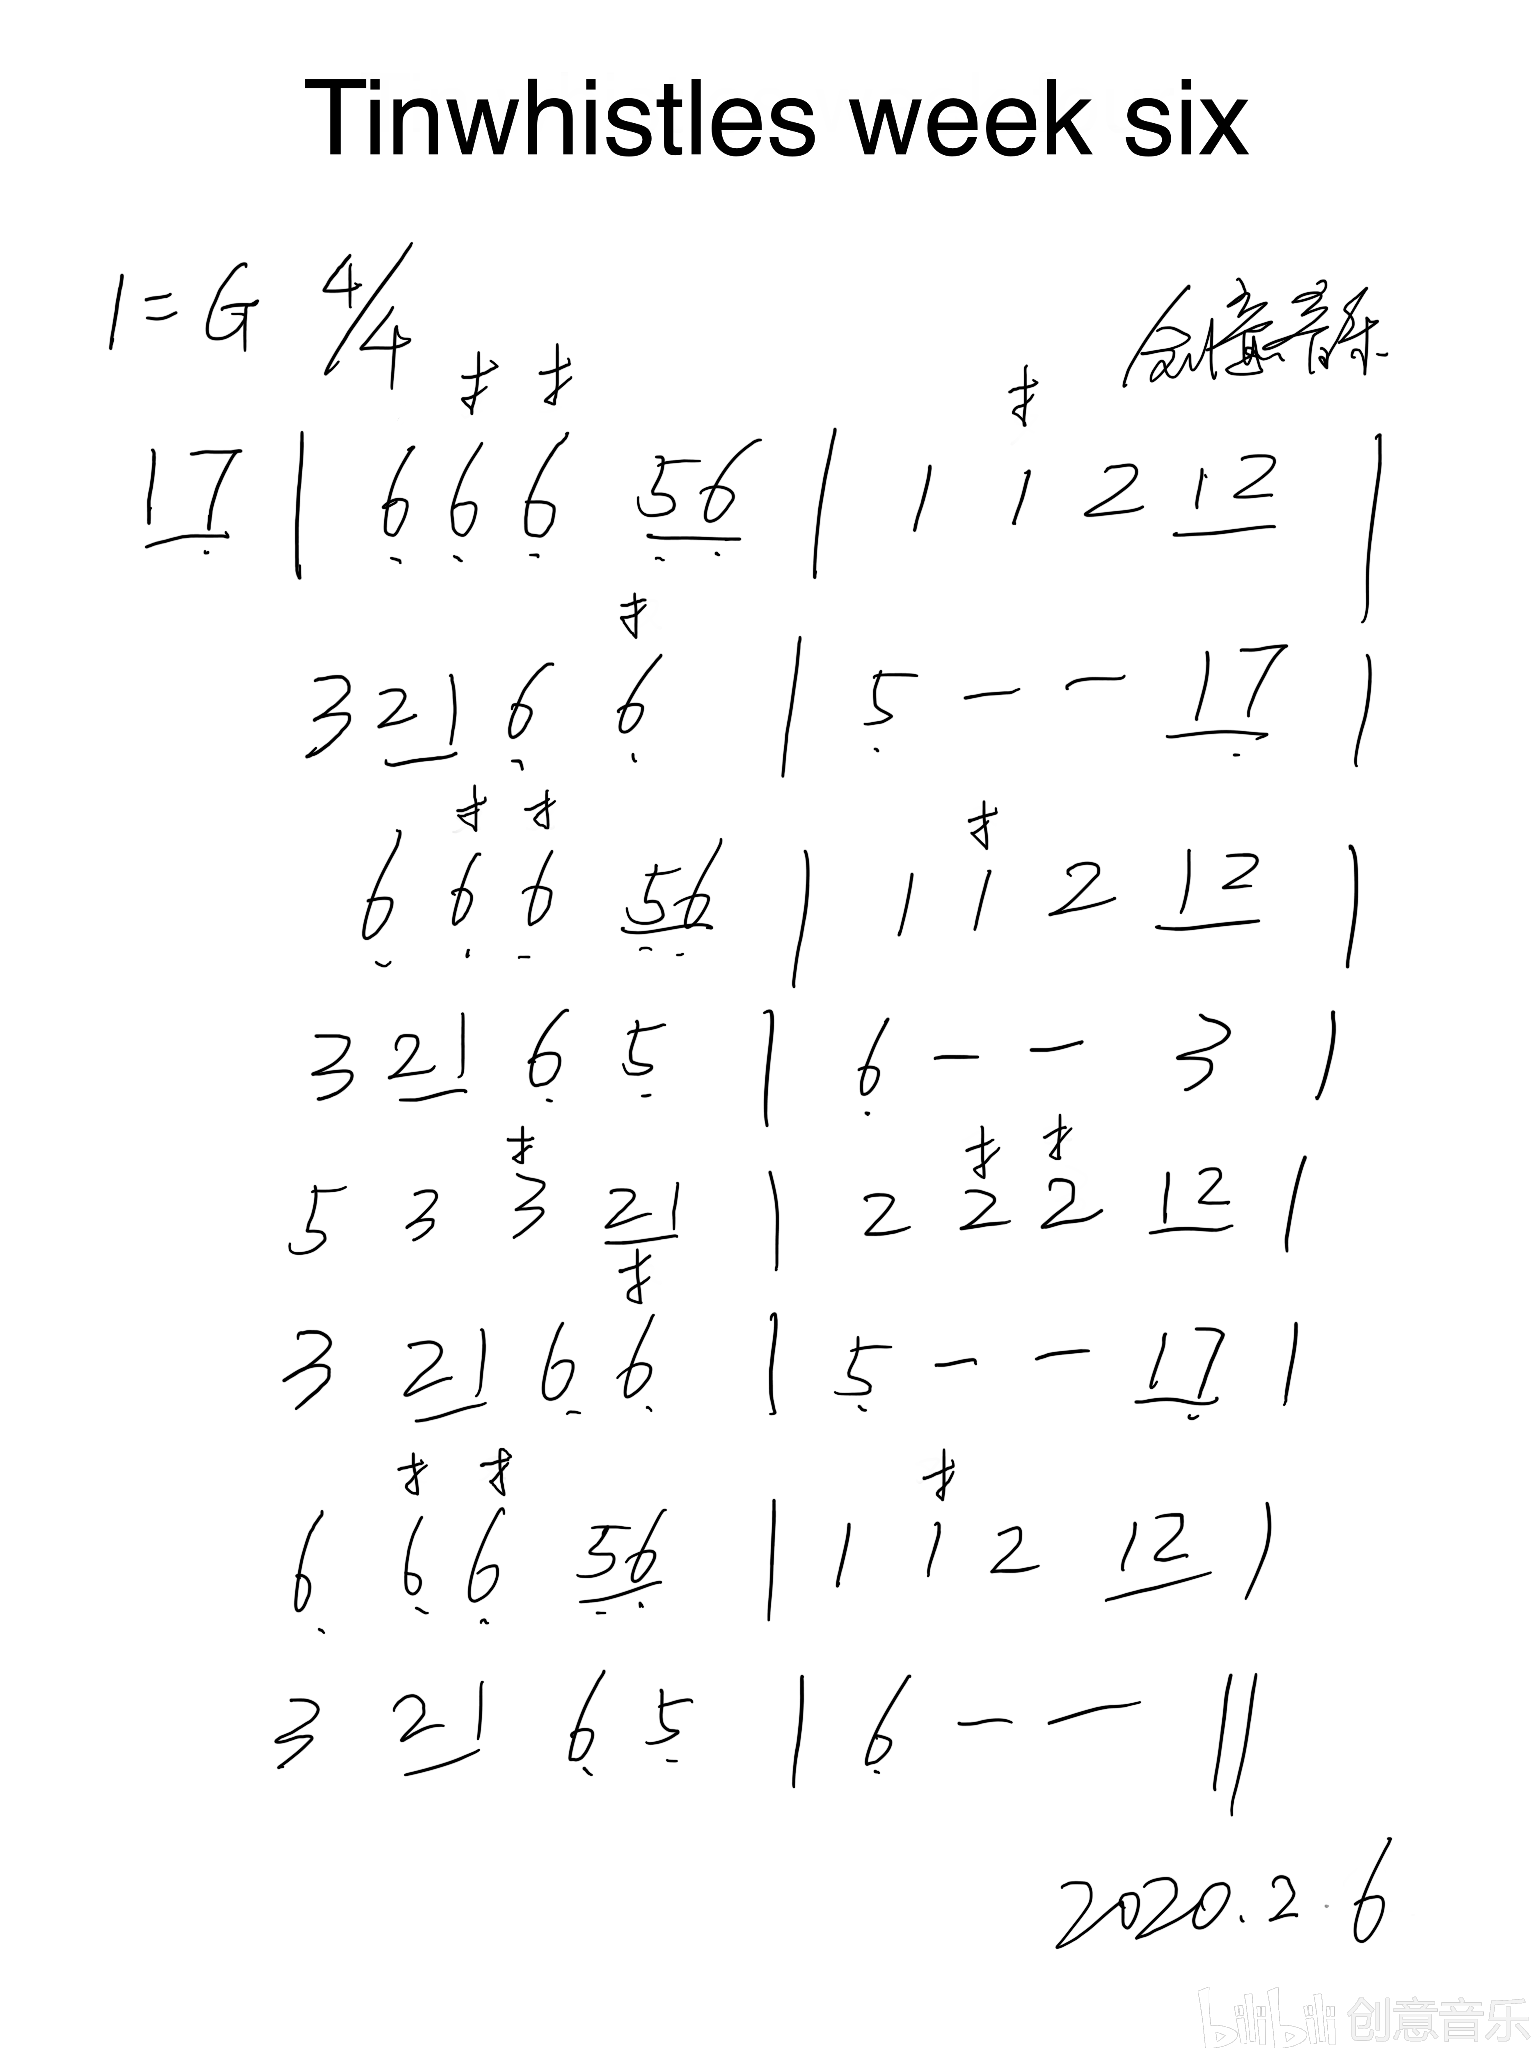 Tinwhistles week six
1=G 4/4
创意音乐
17 | 6 6 6 56 | 1 1 2 12 |
3 21 6 6 | 5 - - 17 |
6 6 6 56 | 1 1 2 12 |
3 21 6 5 | 6 - - 3 |
5 3 3 21 | 2 2 2 12 |
3 21 6 6 | 5 - - 17 |
6 6 6 56 | 1 1 2 12 |
3 21 6 5 | 6 - - ||
2020.2.6
bilibili 创意音乐